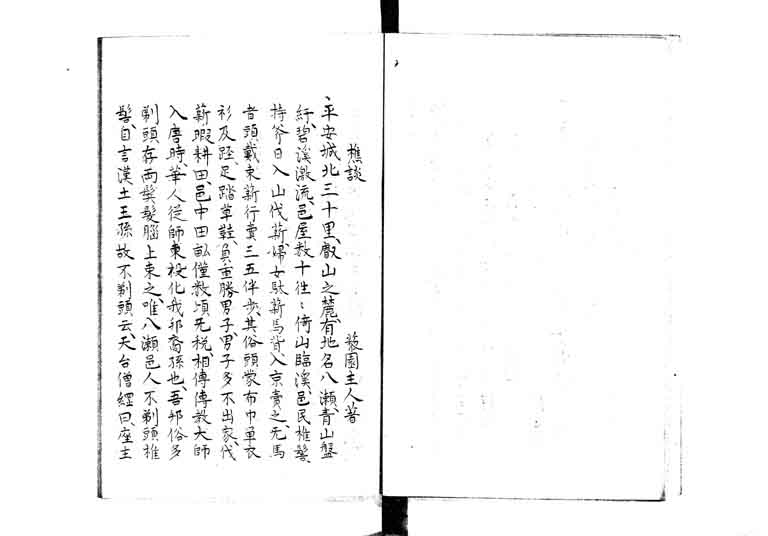 樵談
蘐園主人著
平安城北三十里、叡山之麓、有地名八瀬、青山盤
紆、碧溪激流、邑屋数十、徃〻倚山臨溪、邑民椎髻
持斧日入山伐薪、婦女駄薪馬背入京賣之、无馬
者頭戴束薪行賣三五伴歩、其俗頭蒙布巾単衣
衫及踁、足踏草鞋、負重勝男子、男子多不出家、伐
薪暇耕田、邑中田畝僅数頃无税、相傳傳教大師
入唐時、華人従師東投化我邦裔孫也、吾邦俗多
剃頭存両鬂髪腦上束之、唯八瀬邑人不剃頭椎
髻、自言漢土王孫故不剃頭云、天台僧經曰、座主